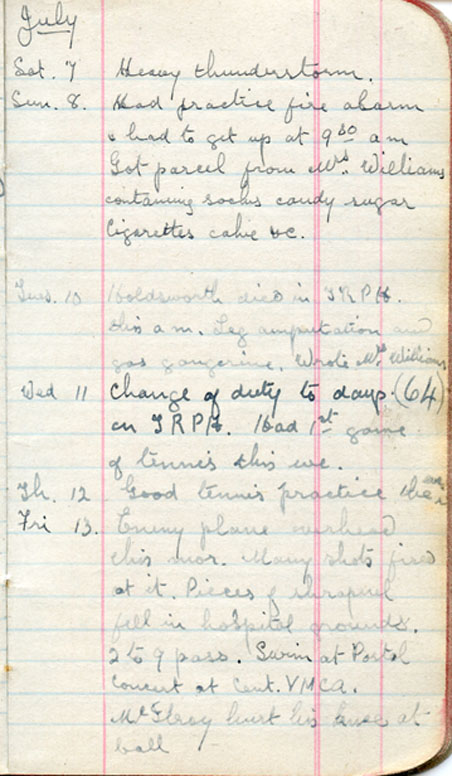 July
Sat. 7 Heavy thunderstorm.
Sun. 8. Had practice fire alarm
& had to get up at 9 30 am
Got parcel from Mrs. Williams
containing socks candy sugar
Cigarettes cake &c.
Tues. 10 Holdsworth died in
this a.m. Leg amputation and
gas gangerine. Wrote Mrs Williams
Wed 11 Change of duty to days. (64)
on Had 1st game
of tennis this eve.
Th. 12 Good tennis practice
Fri 13. Enemy plane overhead
this mor. Many shots fired
at it. Pieces of shrapnel
fell in hospital grounds.
2 to 9 pass. Swim at
Concert at Cent. YMCA.
McElroy hurt his knee at
ball